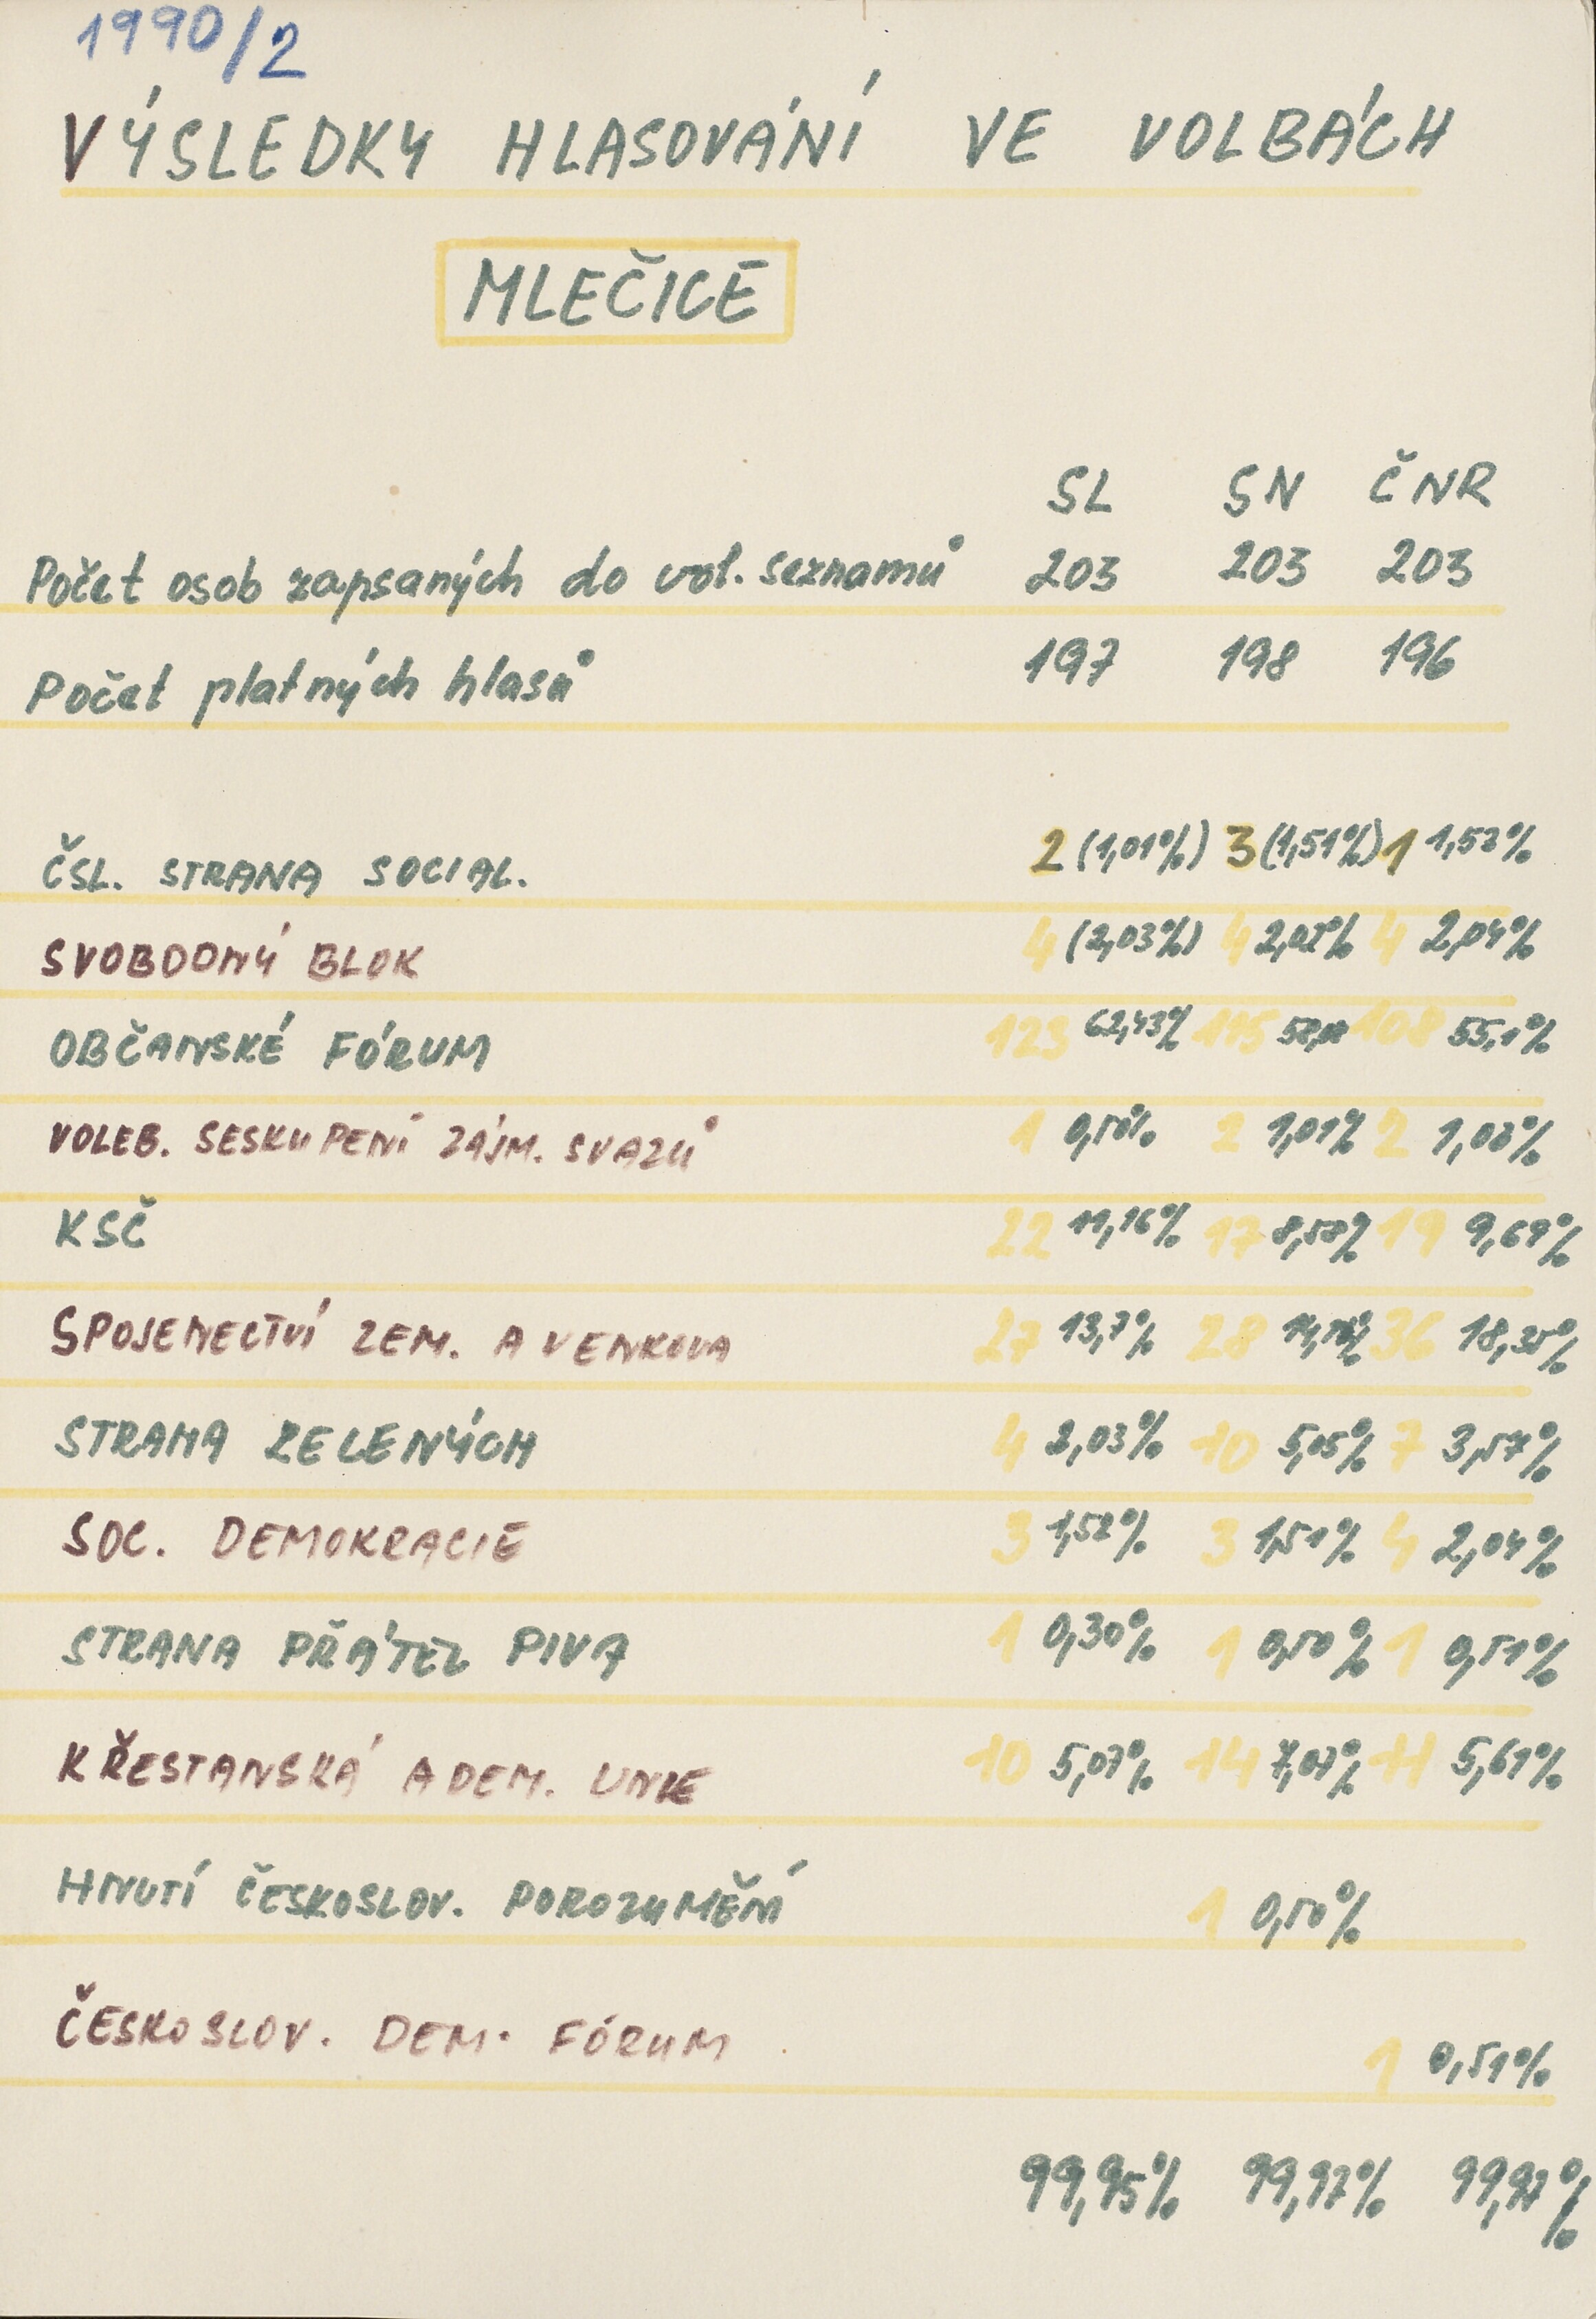 1990/2
VÝSLEDKY HLASOVÁNÍ VE VOLBÁCH
MLEČICE
SL SN ČNR
Počet osob zapsaných do vol. seznamů 203 203 203
Počet platných hlasů 197 198 196
ČSL. STRANA SOCIAL. 2 (1,01%) 3 (1,51%) 1 1,52%
SVOBODNÝ BLOK 4 (2,03%) 4 2,02% 4 2,04%
OBČANSKÉ FÓRUM 123 62,43% 115 108 55,1%
VOLEB. SESKUPENÍ ZÁJM. SVAZŮ 1 0,50% 2 1,01% 2 1,02%
KSČ 22 11,16% 17 8,58% 19 9,69%
SPOJENECTVÍ ZEM. A VENKOVA 27 13,7% 28 36 18,35%
STRANA ZELENÝCH 4 2,03% 10 5,05% 7 3,57%
SOC. DEMOKRACIE 3 1,52% 3 1,51% 4 2,04%
STRANA PŘÁTEL PIVA 1 0,30% 1 0,50% 1 0,51%
KŘESTANSKÁ A DEM. UNIE 10 5,07% 14 7,07% 11 5,61%
HNUTÍ ČESKOSLOV. POROZUMĚNÍ 1 0,50%
ČESKOSLOV. DEM. FÓRUM 1 0,51%
99,95% 99,97% 99,97%